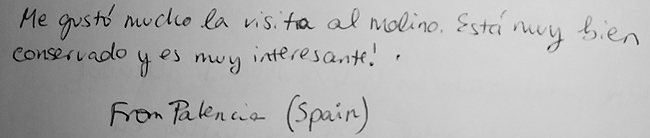 Me gustó mucho la visita al molino. Está muy bien
conservado y es muy interesante! .
From Palencia (Spain)